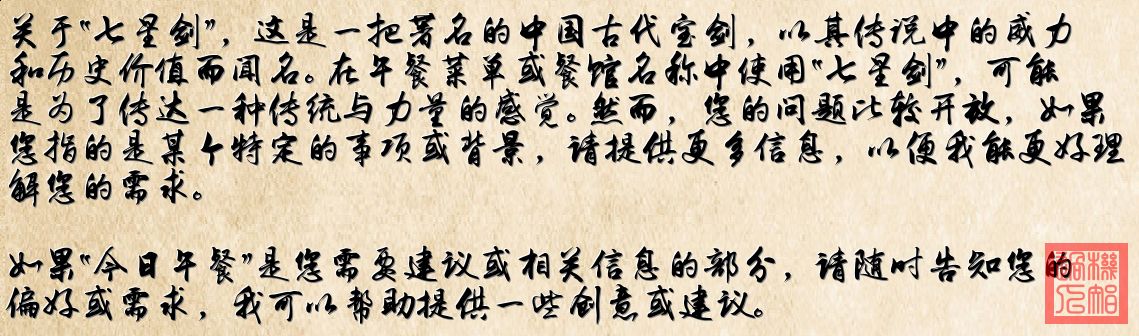 关于“七星剑”，这是一把著名的中国古代宝剑，以其传说中的威力
和历史价值而闻名。在午餐菜单或餐馆名称中使用“七星剑”，可能
是为了传达一种传统与力量的感觉。然而，您的问题比较开放，如果
您指的是某个特定的事项或背景，请提供更多信息，以便我能更好理
解您的需求。
如果“今日午餐”是您需要建议或相关信息的部分，请随时告知您的
偏好或需求，我可以帮助提供一些创意或建议。